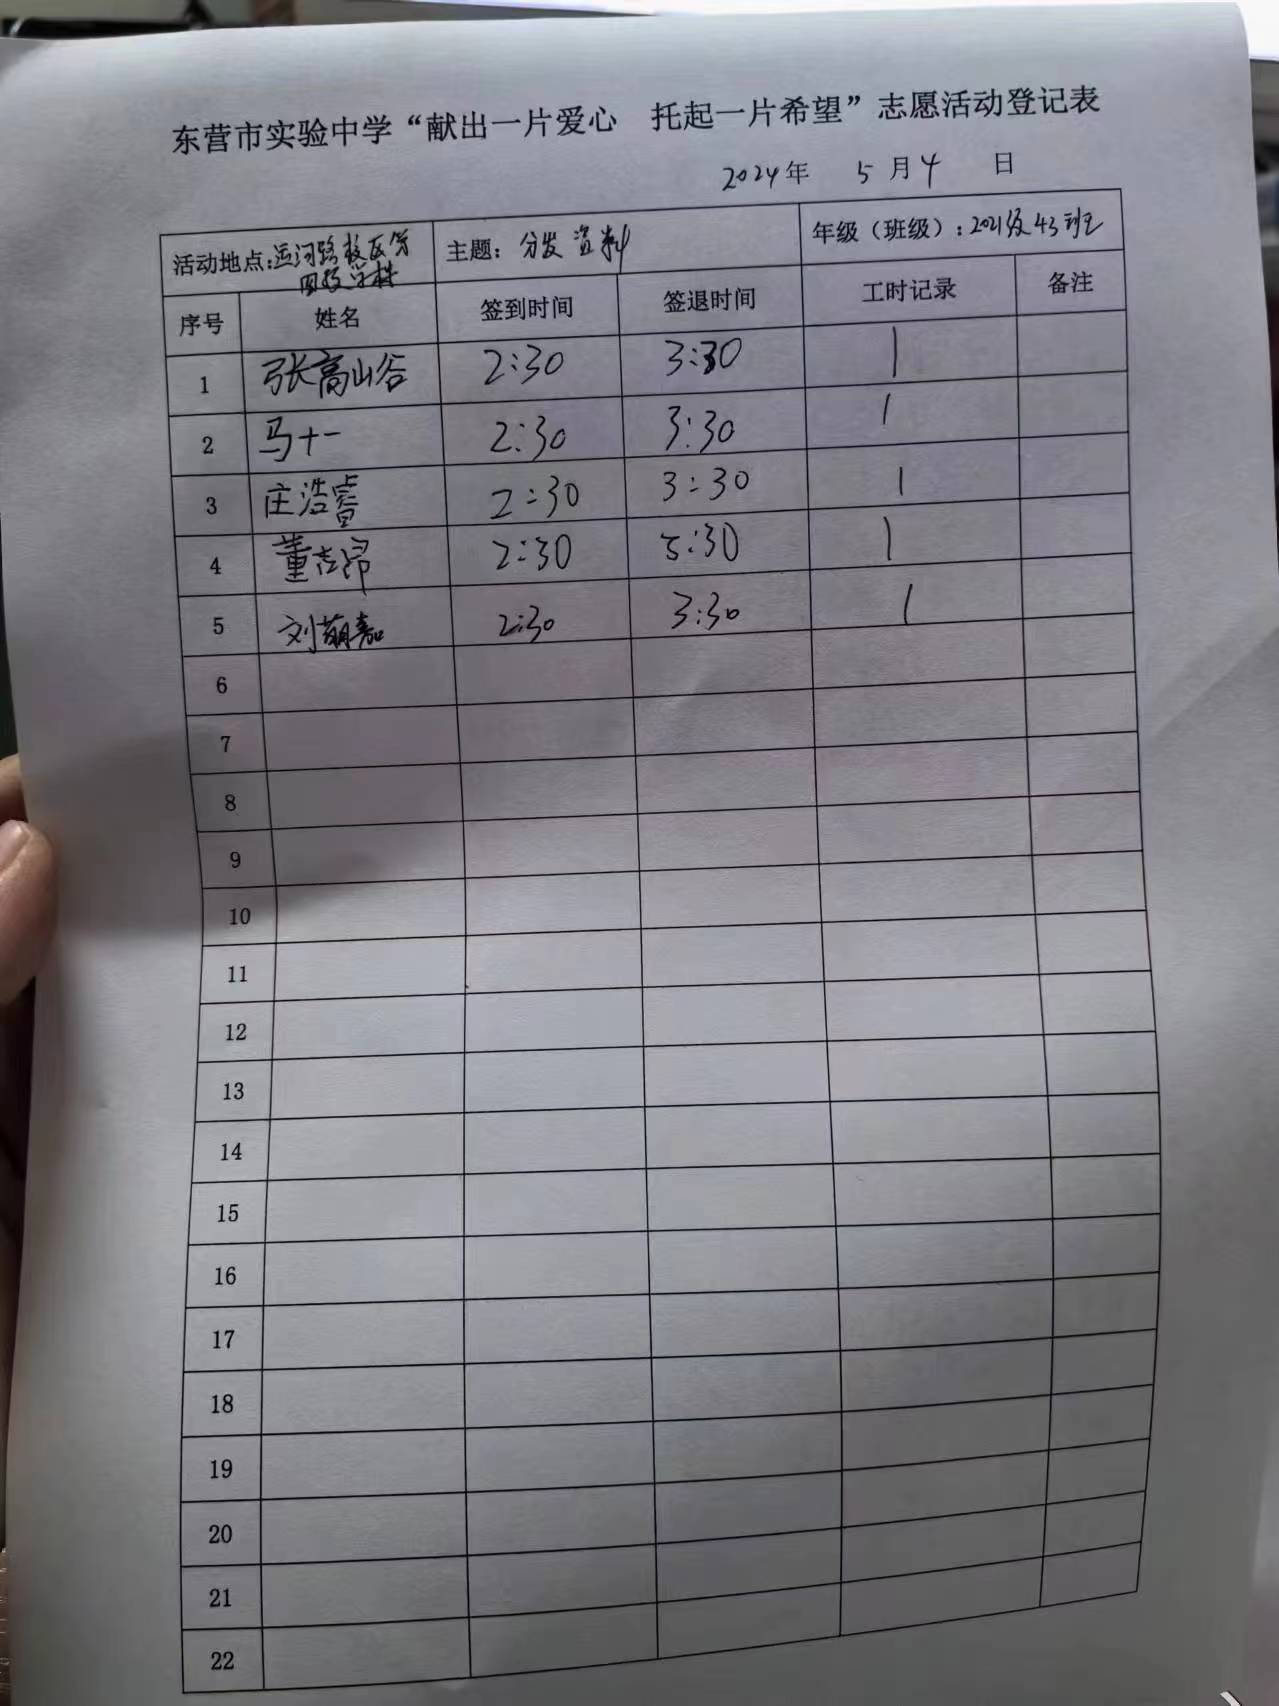 东营市实验中学“献出一片爱心 托起一片希望”志愿活动登记表
2024年 5月4 日
活动地点:运河路校区 主题: 分发资料 年级（班级）: 2021级43班
序号 姓名 签到时间 签退时间 工时记录 备注
1 张高山谷 2:30 3:30 1
2 马十一 2:30 3:30 1
3 庄浩睿 2:30 3:30 1
4 董志昂 2:30 3:30 1
5 刘萌嘉 2:30 3:30 1
6
7
8
9
10
11
12
13
14
15
16
17
18
19
20
21
22